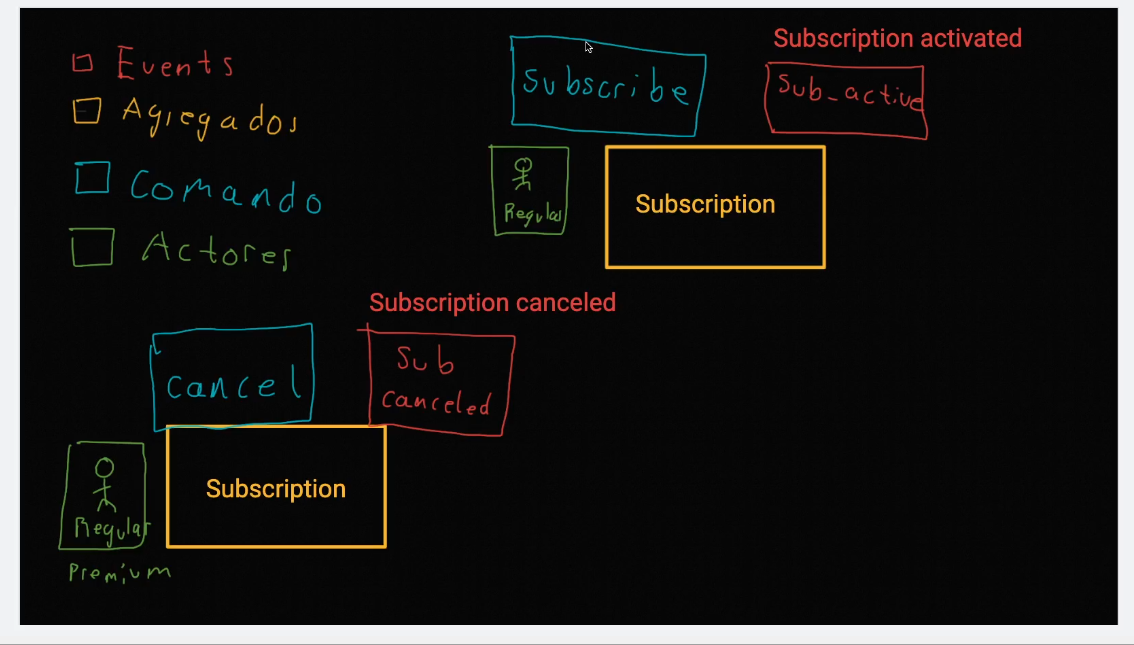 Events
Agregados
Comando
Actores
Subscribe
Subscription activated
Sub_active
Regular
Subscription
Subscription canceled
cancel
Sub
canceled
Regular
Premium
Subscription